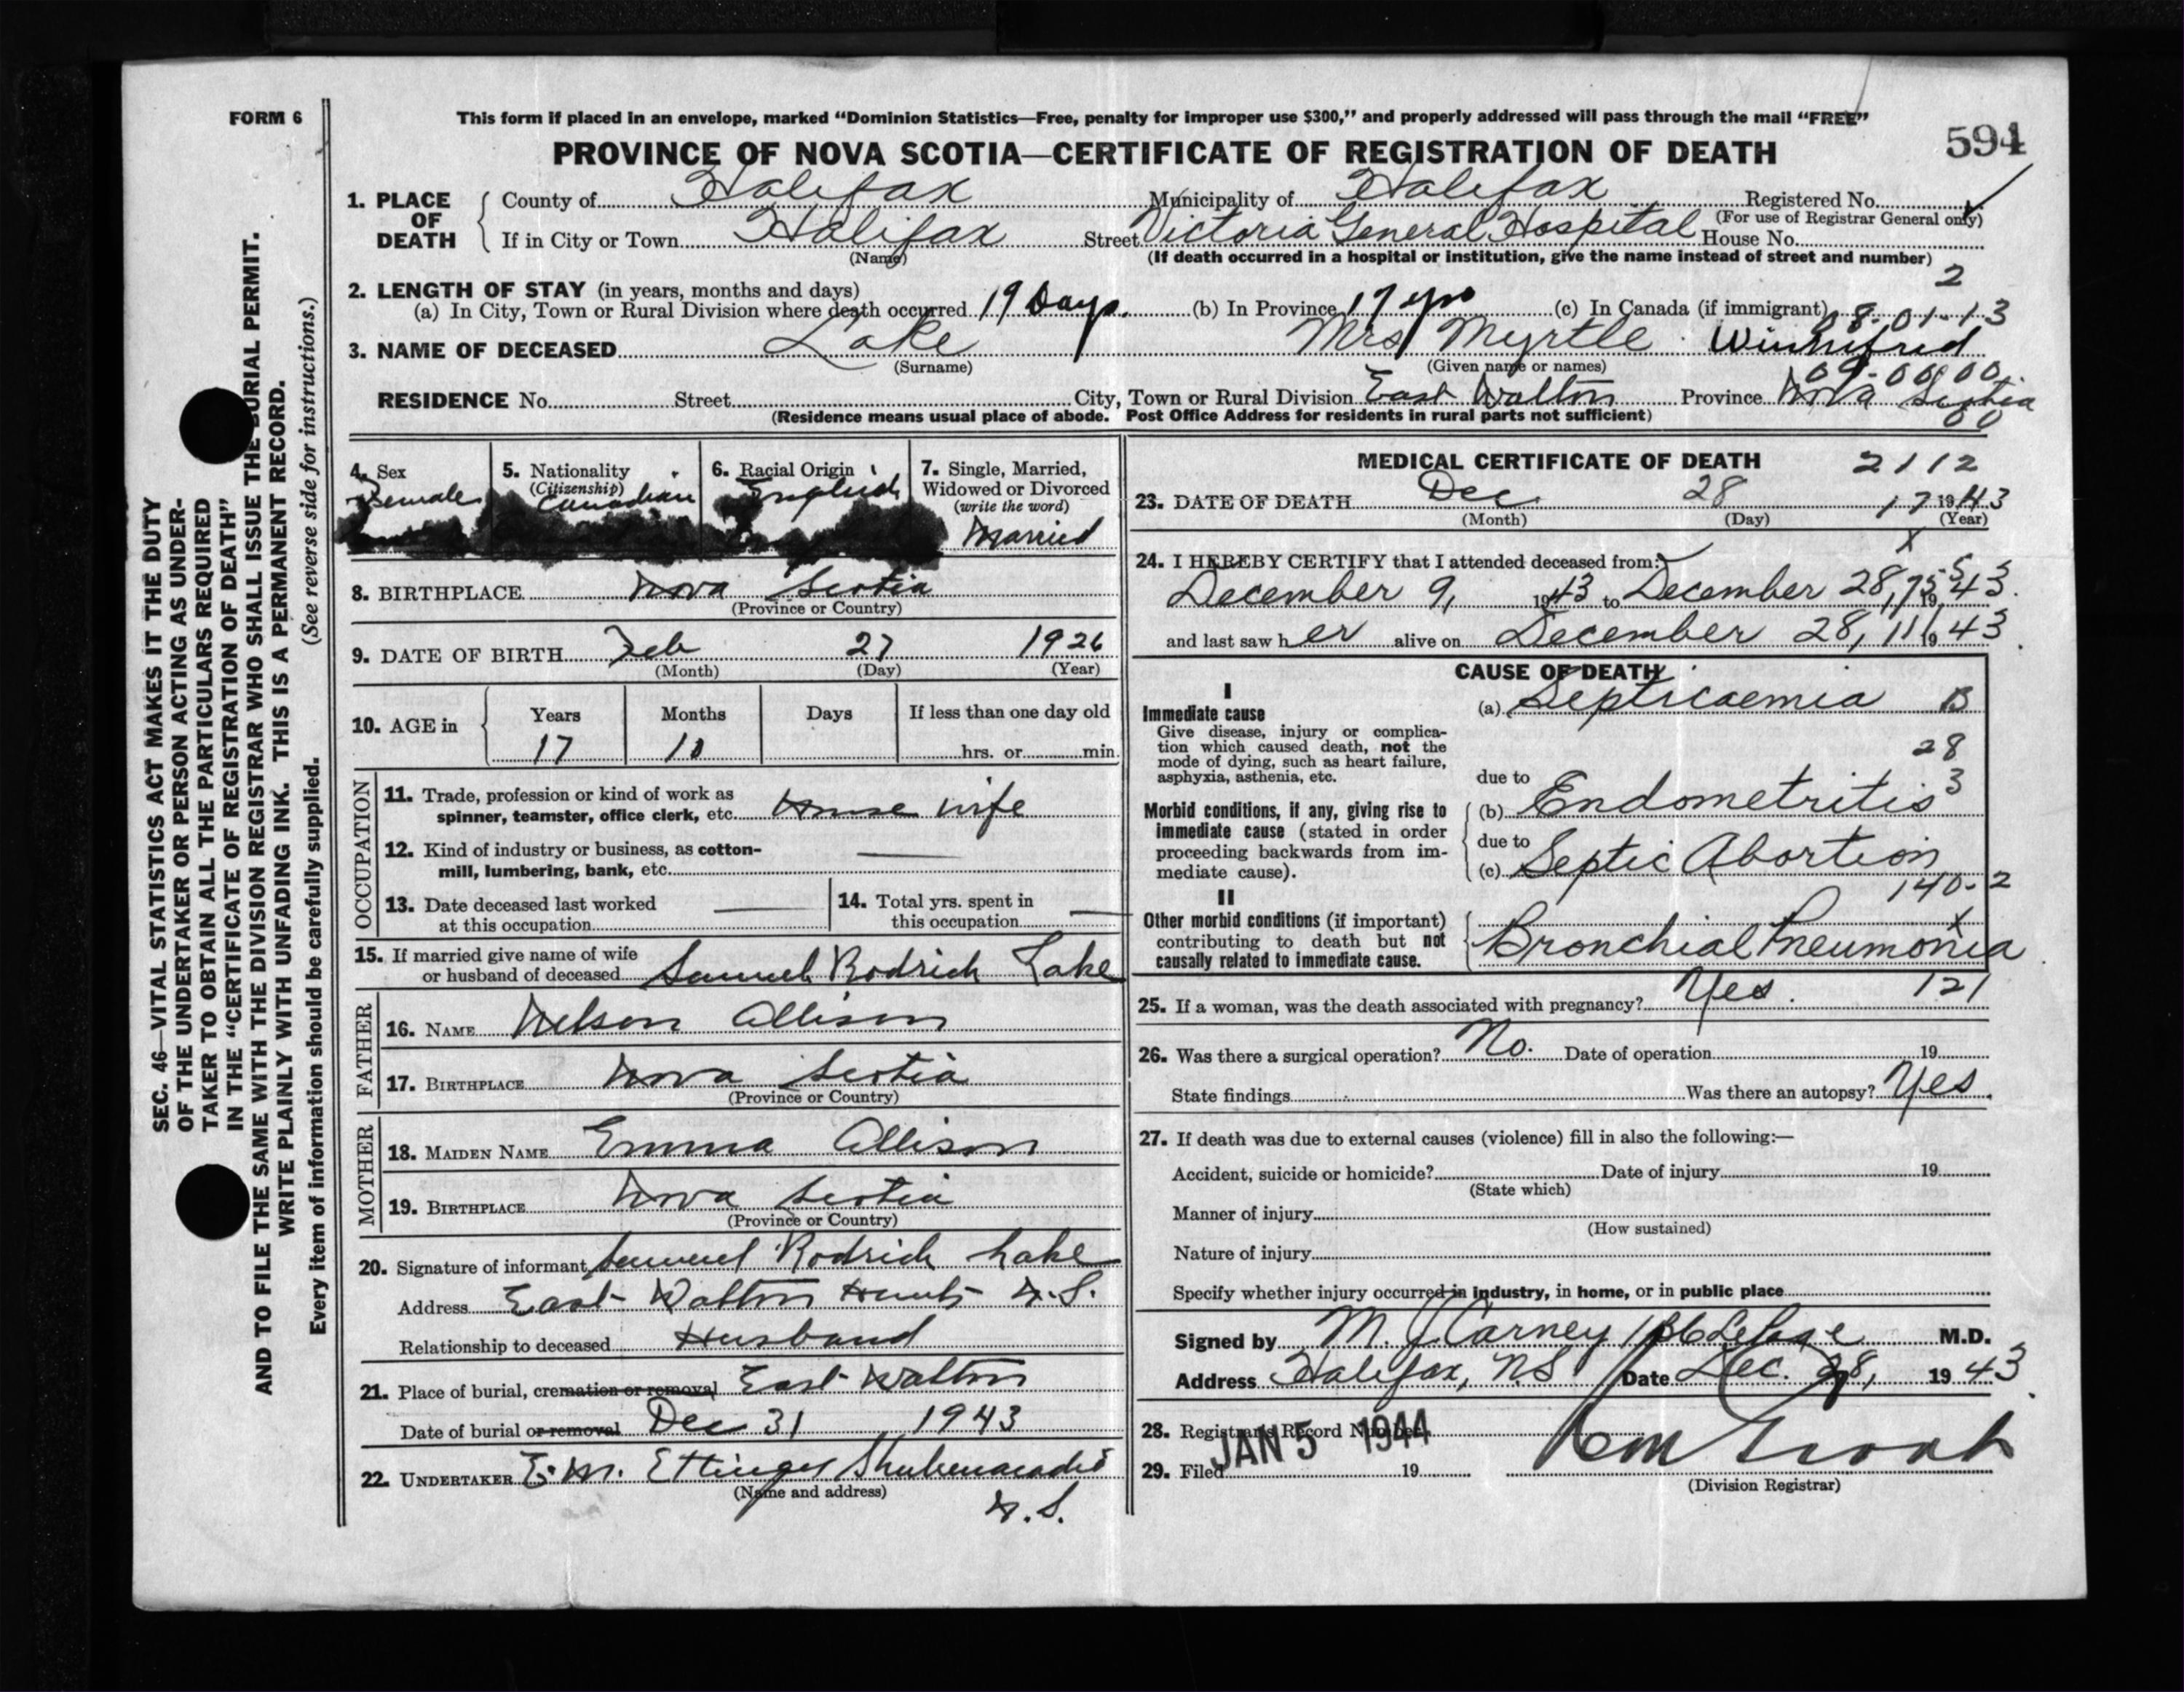 FORM 6
This form if placed in an envelope, marked “Dominion Statistics—Free, penalty for improper use $300,” and properly addressed will pass through the mail “FREE”
594
PROVINCE OF NOVA SCOTIA—CERTIFICATE OF REGISTRATION OF DEATH
1. PLACE OF DEATH
County of Halifax Municipality of Halifax Registered No.
(For use of Registrar General only)
If in City or Town Halifax Street Victoria General Hospital House No.
(Name) (If death occurred in a hospital or institution, give the name instead of street and number)
2
2. LENGTH OF STAY (in years, months and days)
(a) In City, Town or Rural Division where death occurred 19 Days. (b) In Province 17 yrs (c) In Canada (if immigrant)
08-01-13
3. NAME OF DECEASED Lake Mrs Myrtle Winnifred
(Surname) (Given name or names)
09-00 00
RESIDENCE No. Street City, Town or Rural Division East Walton Province Nova Scotia
(Residence means usual place of abode. Post Office Address for residents in rural parts not sufficient)
00
SEC. 46—VITAL STATISTICS ACT MAKES IT THE DUTY
OF THE UNDERTAKER OR PERSON ACTING AS UNDER-
TAKER TO OBTAIN ALL THE PARTICULARS REQUIRED
IN THE “CERTIFICATE OF REGISTRATION OF DEATH”
AND TO FILE THE SAME WITH THE DIVISION REGISTRAR WHO SHALL ISSUE THE BURIAL PERMIT.
WRITE PLAINLY WITH UNFADING INK. THIS IS A PERMANENT RECORD.
Every item of information should be carefully supplied. (See reverse side for instructions.)
4. Sex
Female
5. Nationality
(Citizenship)
Canadian
6. Racial Origin
English
7. Single, Married,
Widowed or Divorced
(write the word)
Married
8. BIRTHPLACE Nova Scotia
(Province or Country)
9. DATE OF BIRTH Feb 27 1926
(Month) (Day) (Year)
10. AGE in Years Months Days If less than one day old
17 10 hrs. or min.
OCCUPATION
11. Trade, profession or kind of work as
spinner, teamster, office clerk, etc. House wife
12. Kind of industry or business, as cotton-
mill, lumbering, bank, etc.
13. Date deceased last worked
at this occupation
14. Total yrs. spent in
this occupation
15. If married give name of wife
or husband of deceased Samuel Rodrich Lake
FATHER
16. NAME Nelson Allison
17. BIRTHPLACE Nova Scotia
(Province or Country)
MOTHER
18. MAIDEN NAME Emma Allison
19. BIRTHPLACE Nova Scotia
(Province or Country)
20. Signature of informant Samuel Rodrich Lake
Address East Walton Hants N.S.
Relationship to deceased Husband
21. Place of burial, cremation or removal East Walton
Date of burial or removal Dec 31 1943
22. UNDERTAKER E. M. Ettinger Shubenacadie
(Name and address)
N.S.
MEDICAL CERTIFICATE OF DEATH 2112
23. DATE OF DEATH Dec. 28 17 1943
(Month) (Day) (Year)
x
24. I HEREBY CERTIFY that I attended deceased from:
December 9, 1943 to December 28, 1943.
and last saw her alive on December 28, 1943
CAUSE OF DEATH
I
Immediate cause
Give disease, injury or complica-
tion which caused death, not the
mode of dying, such as heart failure,
asphyxia, asthenia, etc.
(a) Septicaemia B
28
due to
3
Morbid conditions, if any, giving rise to
immediate cause (stated in order
proceeding backwards from im-
mediate cause).
(b) Endometritis
due to
(c) Septic Abortion
140-2
II
Other morbid conditions (if important)
contributing to death but not
causally related to immediate cause.
x
Bronchial Pneumonia
25. If a woman, was the death associated with pregnancy? Yes. 121
26. Was there a surgical operation? No. Date of operation 19
State findings Was there an autopsy? Yes.
27. If death was due to external causes (violence) fill in also the following:—
Accident, suicide or homicide? Date of injury 19
(State which)
Manner of injury
(How sustained)
Nature of injury
Specify whether injury occurred in industry, in home, or in public place
Signed by M. J. Carney M.D.
Address Halifax, NS Date Dec. 28, 1943.
28. Registrar's Record Number
JAN 5 1944
29. Filed 19
(Division Registrar)